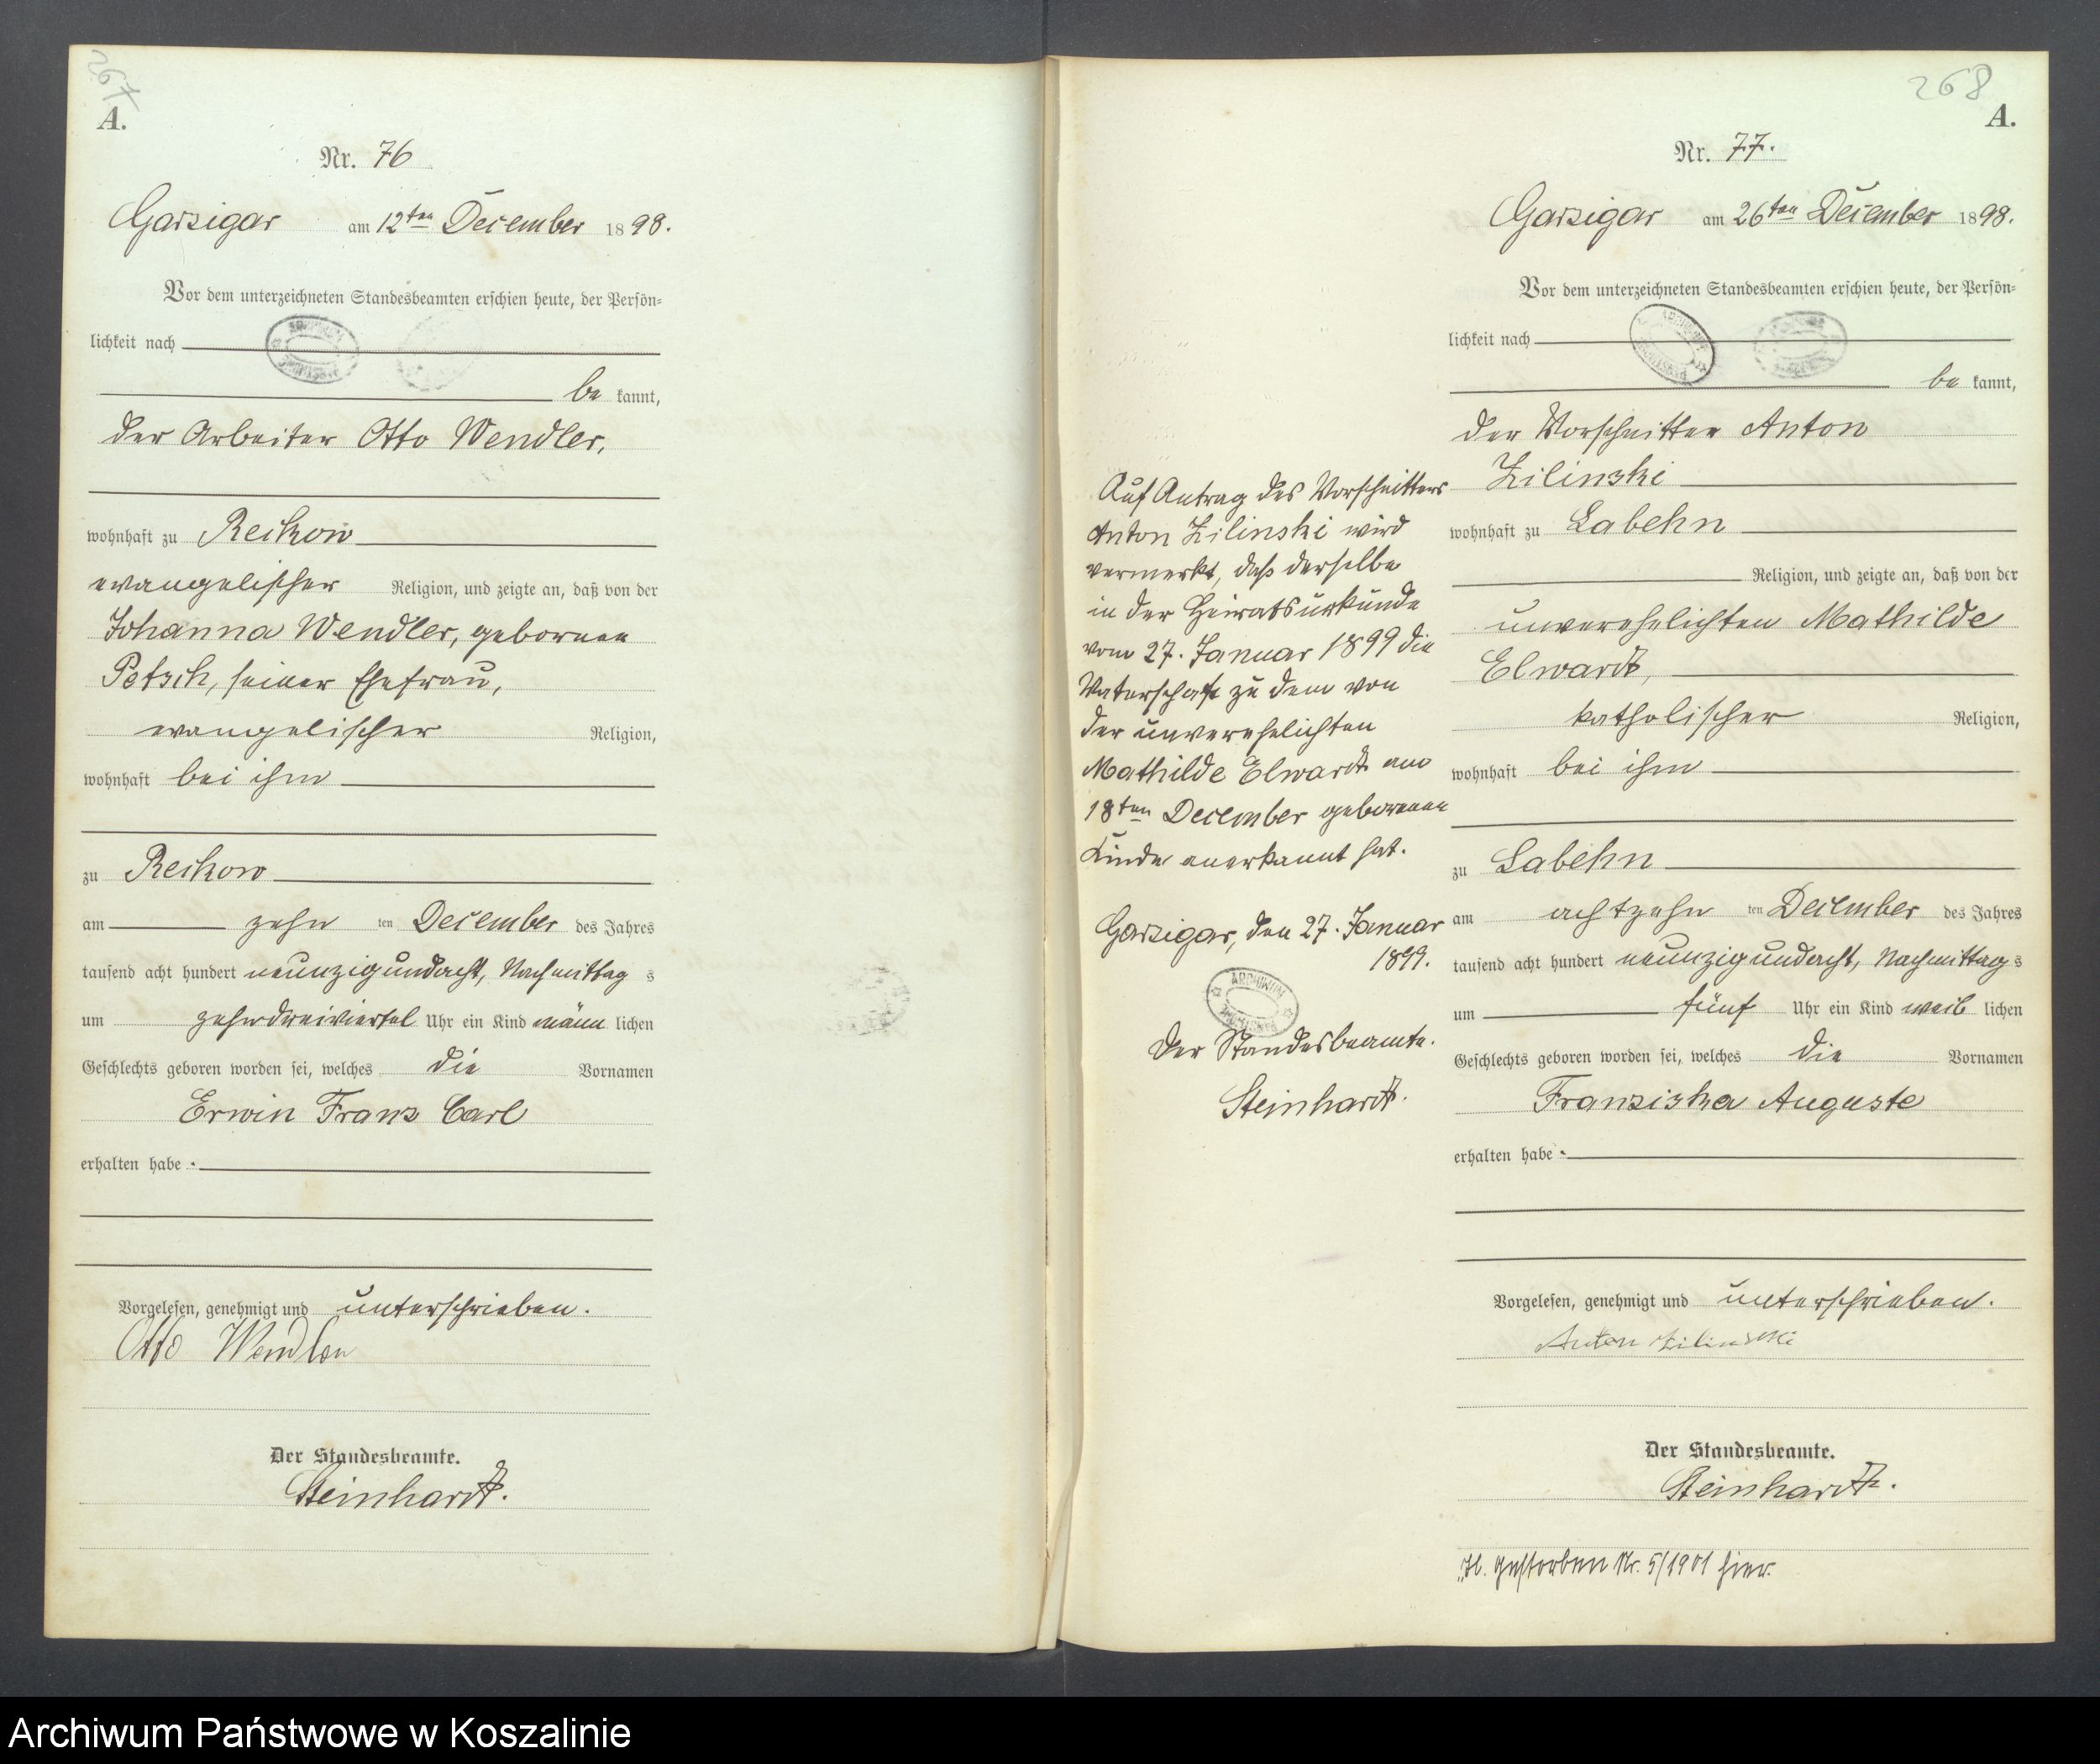 267
A.
Nr. 76
Garzigar am 12ten December 1898.
Vor dem unterzeichneten Standesbeamten erschien heute, der Persön-
lichkeit nach
be kannt,
der Arbeiter Otto Wendler,
wohnhaft zu Reckow
evangelischer Religion, und zeigte an, daß von der
Johanna Wendler, geborenen
Petsch, seiner Ehefrau,
evangelischer Religion,
wohnhaft bei ihm
zu Reckow
am zehn ten December des Jahres
tausend acht hundert neunzigundacht, Nachmittag s
um zehndreiviertel Uhr ein Kind männ lichen
Geschlechts geboren worden sei, welches die Vornamen
Erwin Franz Carl
erhalten habe.
Vorgelesen, genehmigt und unterschrieben.
Otto Wendler
Der Standesbeamte.
Steinhardt.
268
A.
Nr. 77.
Garzigar am 26ten December 1898.
Vor dem unterzeichneten Standesbeamten erschien heute, der Persön-
lichkeit nach
be kannt,
der Vorschnitter Anton
Zilinski
wohnhaft zu Labehn
Religion, und zeigte an, daß von der
unverehelichten Mathilde
Elwardt,
katholischer Religion,
wohnhaft bei ihm
zu Labehn
am achtzehn ten December des Jahres
tausend acht hundert neunzigundacht, Nachmittag s
um fünf Uhr ein Kind weib lichen
Geschlechts geboren worden sei, welches die Vornamen
Franziska Auguste
erhalten habe.
Vorgelesen, genehmigt und unterschrieben.
Anton Zilinski
Der Standesbeamte.
Steinhardt.
Gestorben Nr. 5/1901 hier.
Auf Antrag des Vorschnitters
Anton Zilinski wird
vermerkt, daß derselbe
in der Heiratsurkunde
vom 27. Januar 1899 die
Vaterschaft zu dem von
der unverehelichten
Mathilde Elwardt am
18ten December geborenen
Kinde anerkannt hat.
Garzigar, den 27. Januar
1899.
ARCHIWUM
Der Standesbeamte.
Steinhardt.
Archiwum Państwowe w Koszalinie